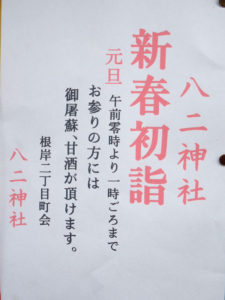 八二神社
新春初詣
元旦 午前零時より一時ごろまで
お参りの方には
御屠蘇、甘酒が頂けます。
根岸二丁目町会
八二神社